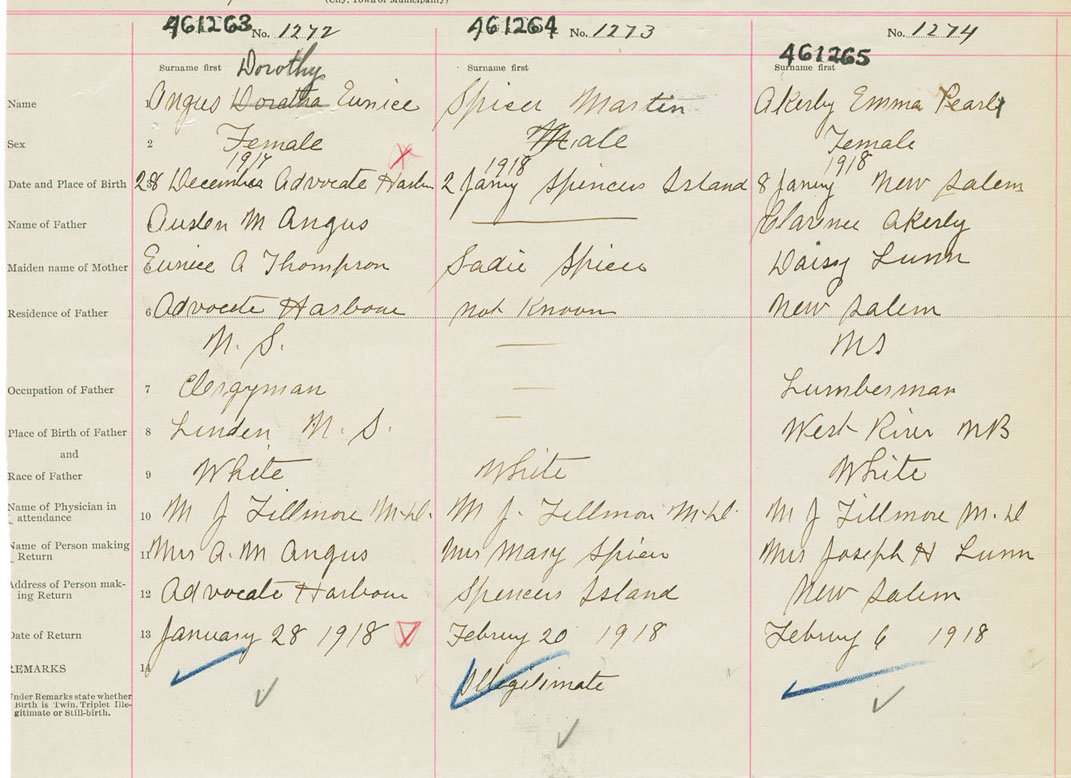 (City, Town or Municipality)
461263 No. 1272 461264 No. 1273 461265 No. 1274
Surname first Surname first Surname first
Dorothy
Name 1 Angus Doratha Eunice Spicer Martin Akerby Emma Pearl
Sex 2 Female Male Female
1917 1918 1918
Date and Place of Birth 3 28 December Advocate Harbor 2 Janry Spencers Island 8 Janry New Salem
Name of Father Austen M Angus Clarence Akerby
Maiden name of Mother Eunice A Thompson Sadie Spicer Daisy Lunn
Residence of Father 6 Advocate Harbour not Known New Salem
N. S. NS
Occupation of Father 7 Clergyman Lumberman
Place of Birth of Father 8 Linden N. S. West River NB
and
Race of Father 9 White White White
Name of Physician in attendance 10 M J Fillmore M.D. M J. Fillmore M.D. M J Fillmore M.D
Name of Person making Return 11 Mrs A. M Angus Mrs Mary Spicer Mrs Joseph H Lunn
Address of Person making Return 12 Advocate Harbour Spencers Island New Salem
Date of Return 13 January 28 1918 Februry 20 1918 Februry 6 1918
REMARKS 14
Illegitimate
Under Remarks state whether
Birth is Twin, Triplet Ille-
gitimate or Still-birth.